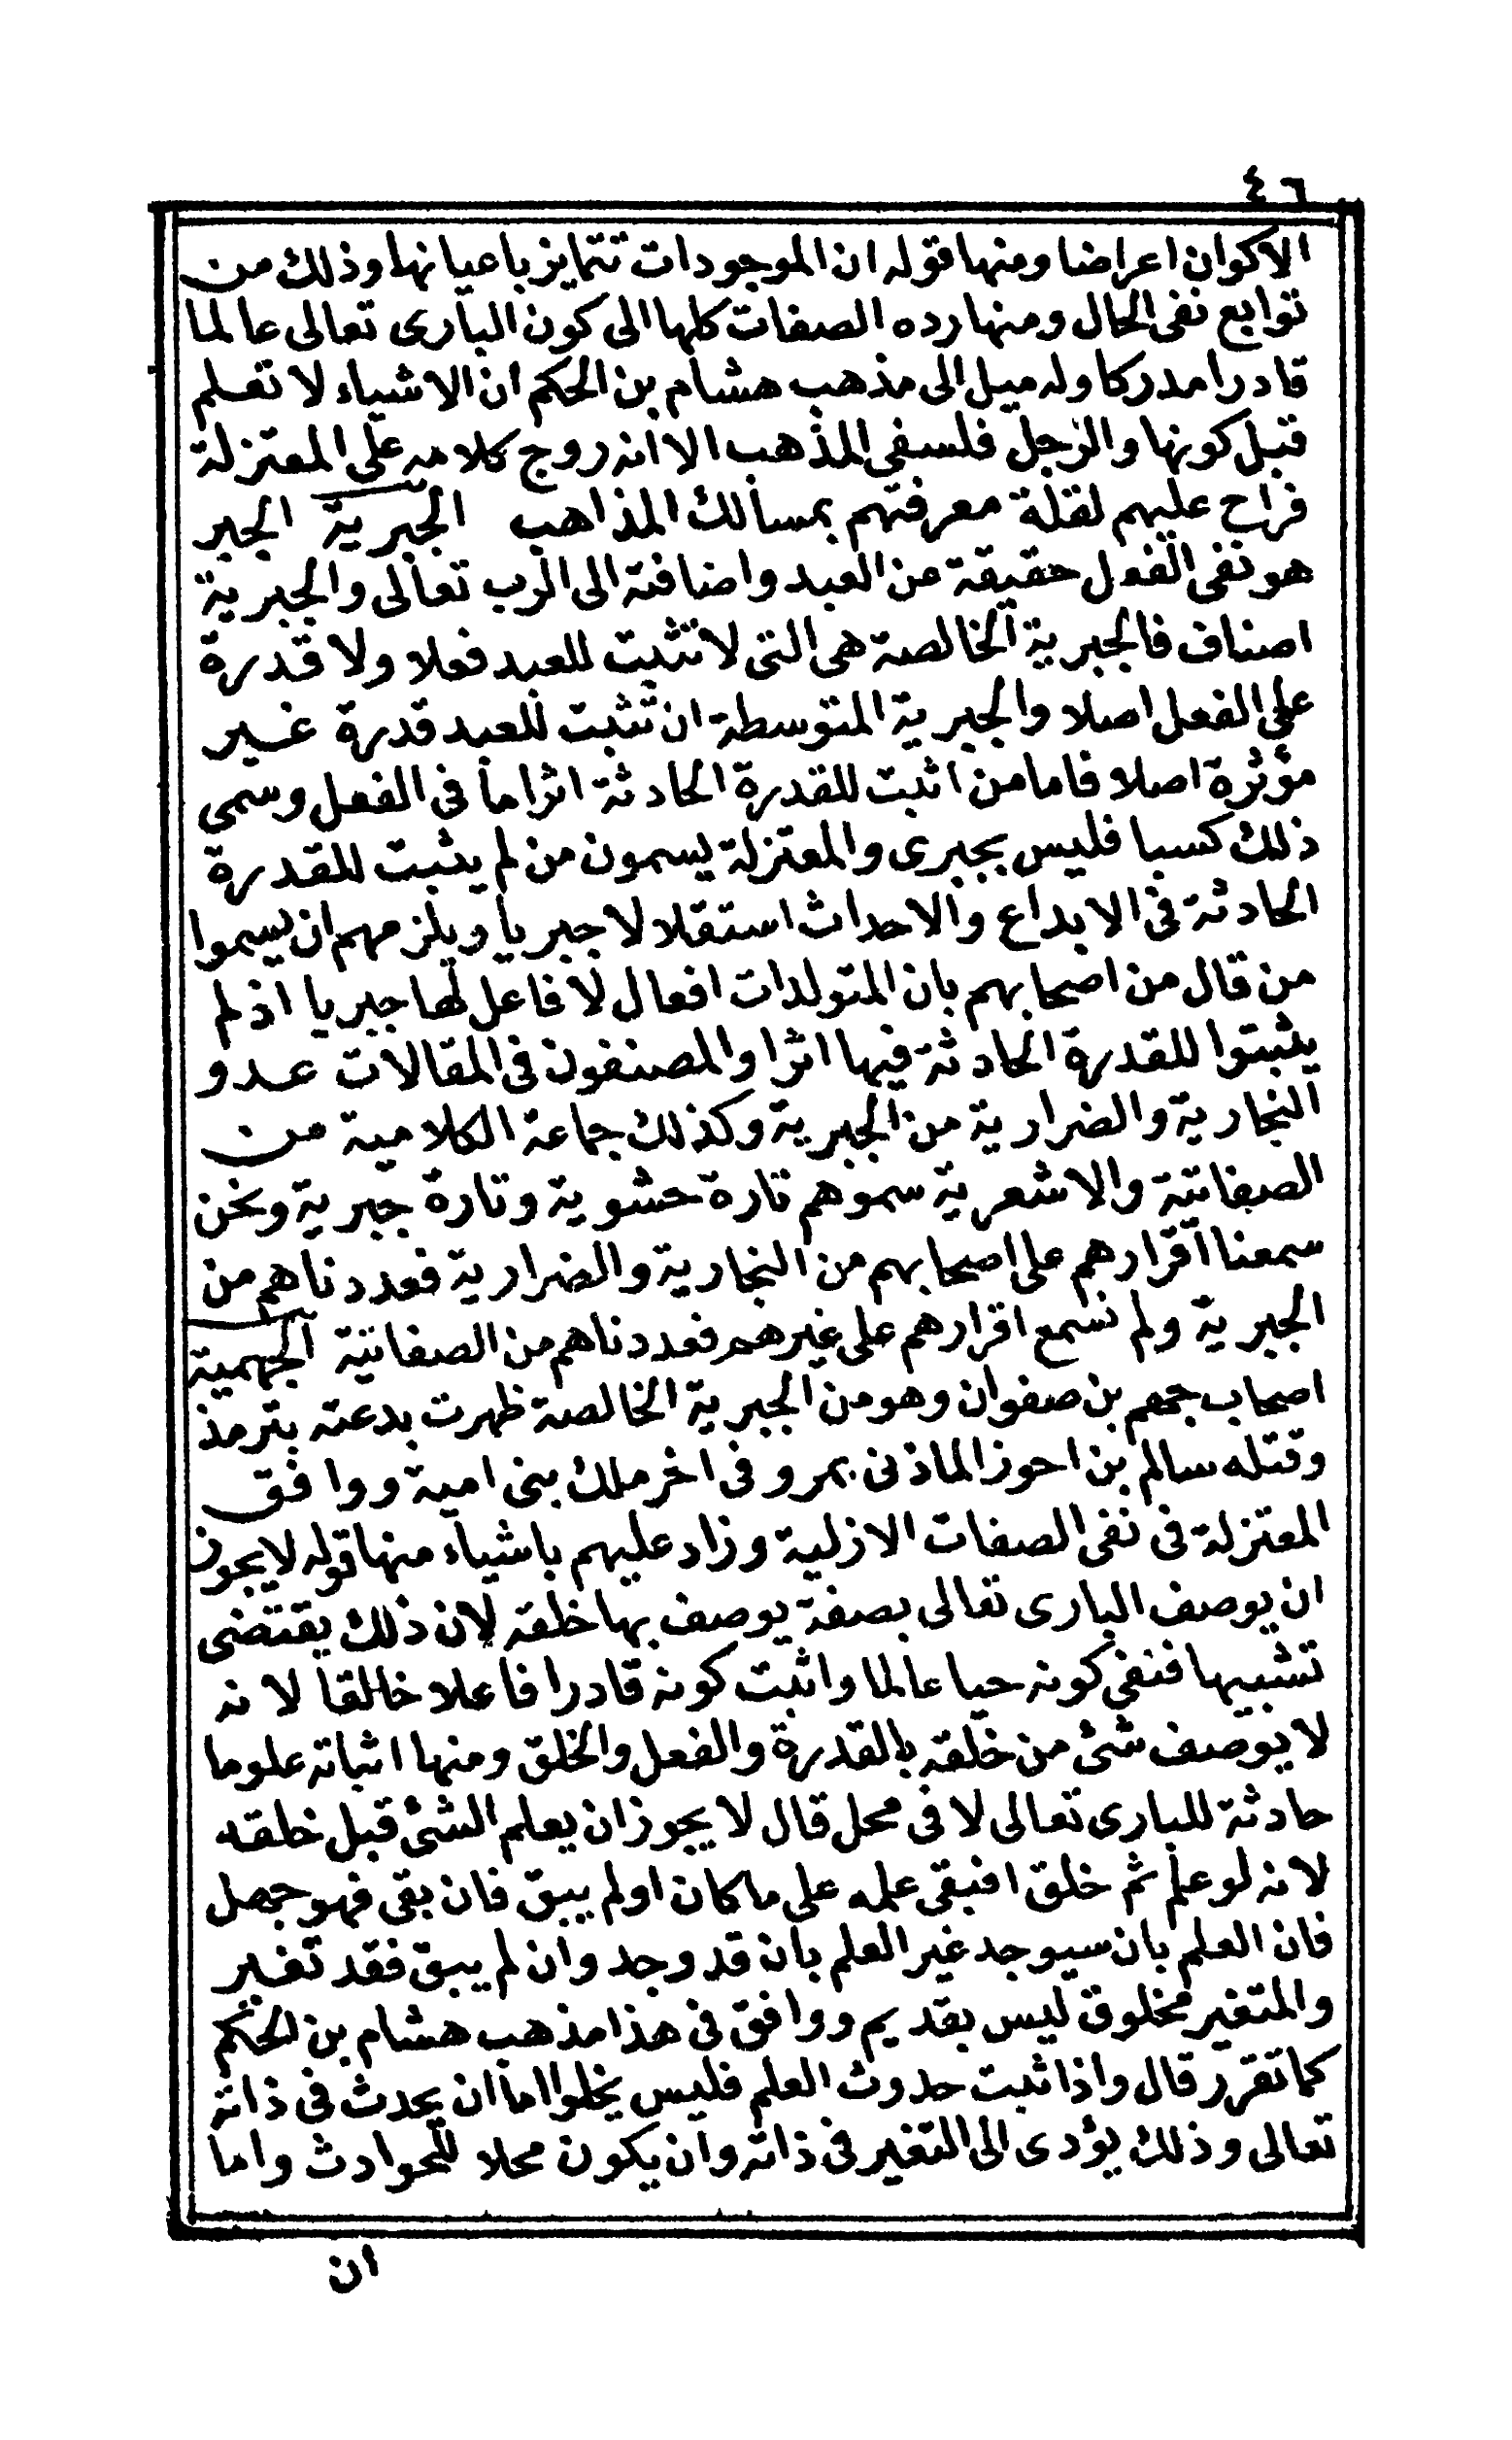 ٤٦
الاكوان اعراضا ومنها قوله ان الموجودات تتمايز باعيانها وذلك من
توابع نفى الحال ومنها رده الصفات كلها الى كون البارى تعالى عالما
قادرا مدركا وله ميل الى مذهب هشام بن الحكم ان الاشياء لا تعلم
قبل كونها والرجل فلسفى المذهب الا انه روج كلامه على المعتزلة
فراج عليهم لقلة معرفتهم بمسالك المذاهب الجبرية الجبر
هو نفى الفعل حقيقة عن العبد واضافته الى الرب تعالى والجبرية
اصناف فالجبرية الخالصة هى التى لا تثبت للعبد فعلا ولا قدرة
على الفعل اصلا والجبرية المتوسطة ان تثبت للعبد قدرة غير
مؤثرة اصلا فاما من اثبت للقدرة الحادثة اثرا ما فى الفعل وسمى
ذلك كسبا فليس بجبرى والمعتزلة يسمون من لم يثبت للقدرة
الحادثة فى الابداع والاحداث استقلالا جبريا ويلزمهم ان يسموا
من قال من اصحابهم بان المتولدات افعال لا فاعل لها جبريا اذ لم
يثبتوا للقدرة الحادثة فيها اثرا والمصنفون فى المقالات عدو
النجارية والضرارية من الجبرية وكذلك جماعة الكلامية من
الصفاتية والاشعرية سموهم تارة حشوية وتارة جبرية ونحن
سمعنا اقرارهم على اصحابهم من النجارية والضرارية فعددناهم من
الجبرية ولم نسمع اقرارهم على غيرهم فعددناهم من الصفاتية الجهمية
اصحاب جهم بن صفوان وهو من الجبرية الخالصة ظهرت بدعته بترمذ
وقتله سالم بن احوز المازنى بمرو فى اخر ملك بنى امية ووافق
المعتزلة فى نفى الصفات الازلية وزاد عليهم باشياء منها قوله لا يجوز
ان يوصف البارى تعالى بصفة يوصف بها خلقه لان ذلك يقتضى
تشبيها فنفى كونه حيا عالما واثبت كونه قادرا فاعلا خالقا لانه
لا يوصف شئ من خلقه بالقدرة والفعل والخلق ومنها اثباته علوما
حادثة للبارى تعالى لا فى محل قال لا يجوز ان يعلم الشئ قبل خلقه
لانه لو علم ثم خلق افبقى علمه على ما كان او لم يبق فان بقى فهو جهل
فان العلم بان سيوجد غير العلم بان قد وجد وان لم يبق فقد تغير
والمتغير مخلوق ليس بقديم ووافق فى هذا مذهب هشام بن الحكم
كما تقرر قال واذا ثبت حدوث العلم فليس يخلوا اما ان يحدث فى ذاته
تعالى وذلك يؤدى الى التغير فى ذاته وان يكون محلا للحوادث واما
ان